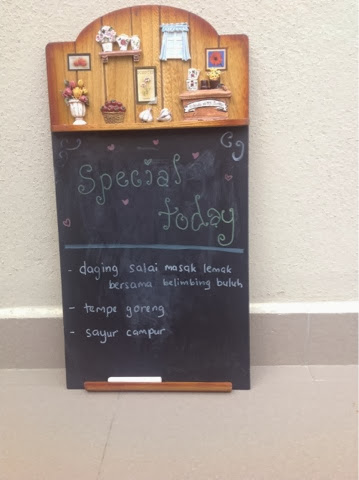 Special
today
- daging salai masak lemak
bersama belimbing buluh
- tempe goreng
- sayur campur